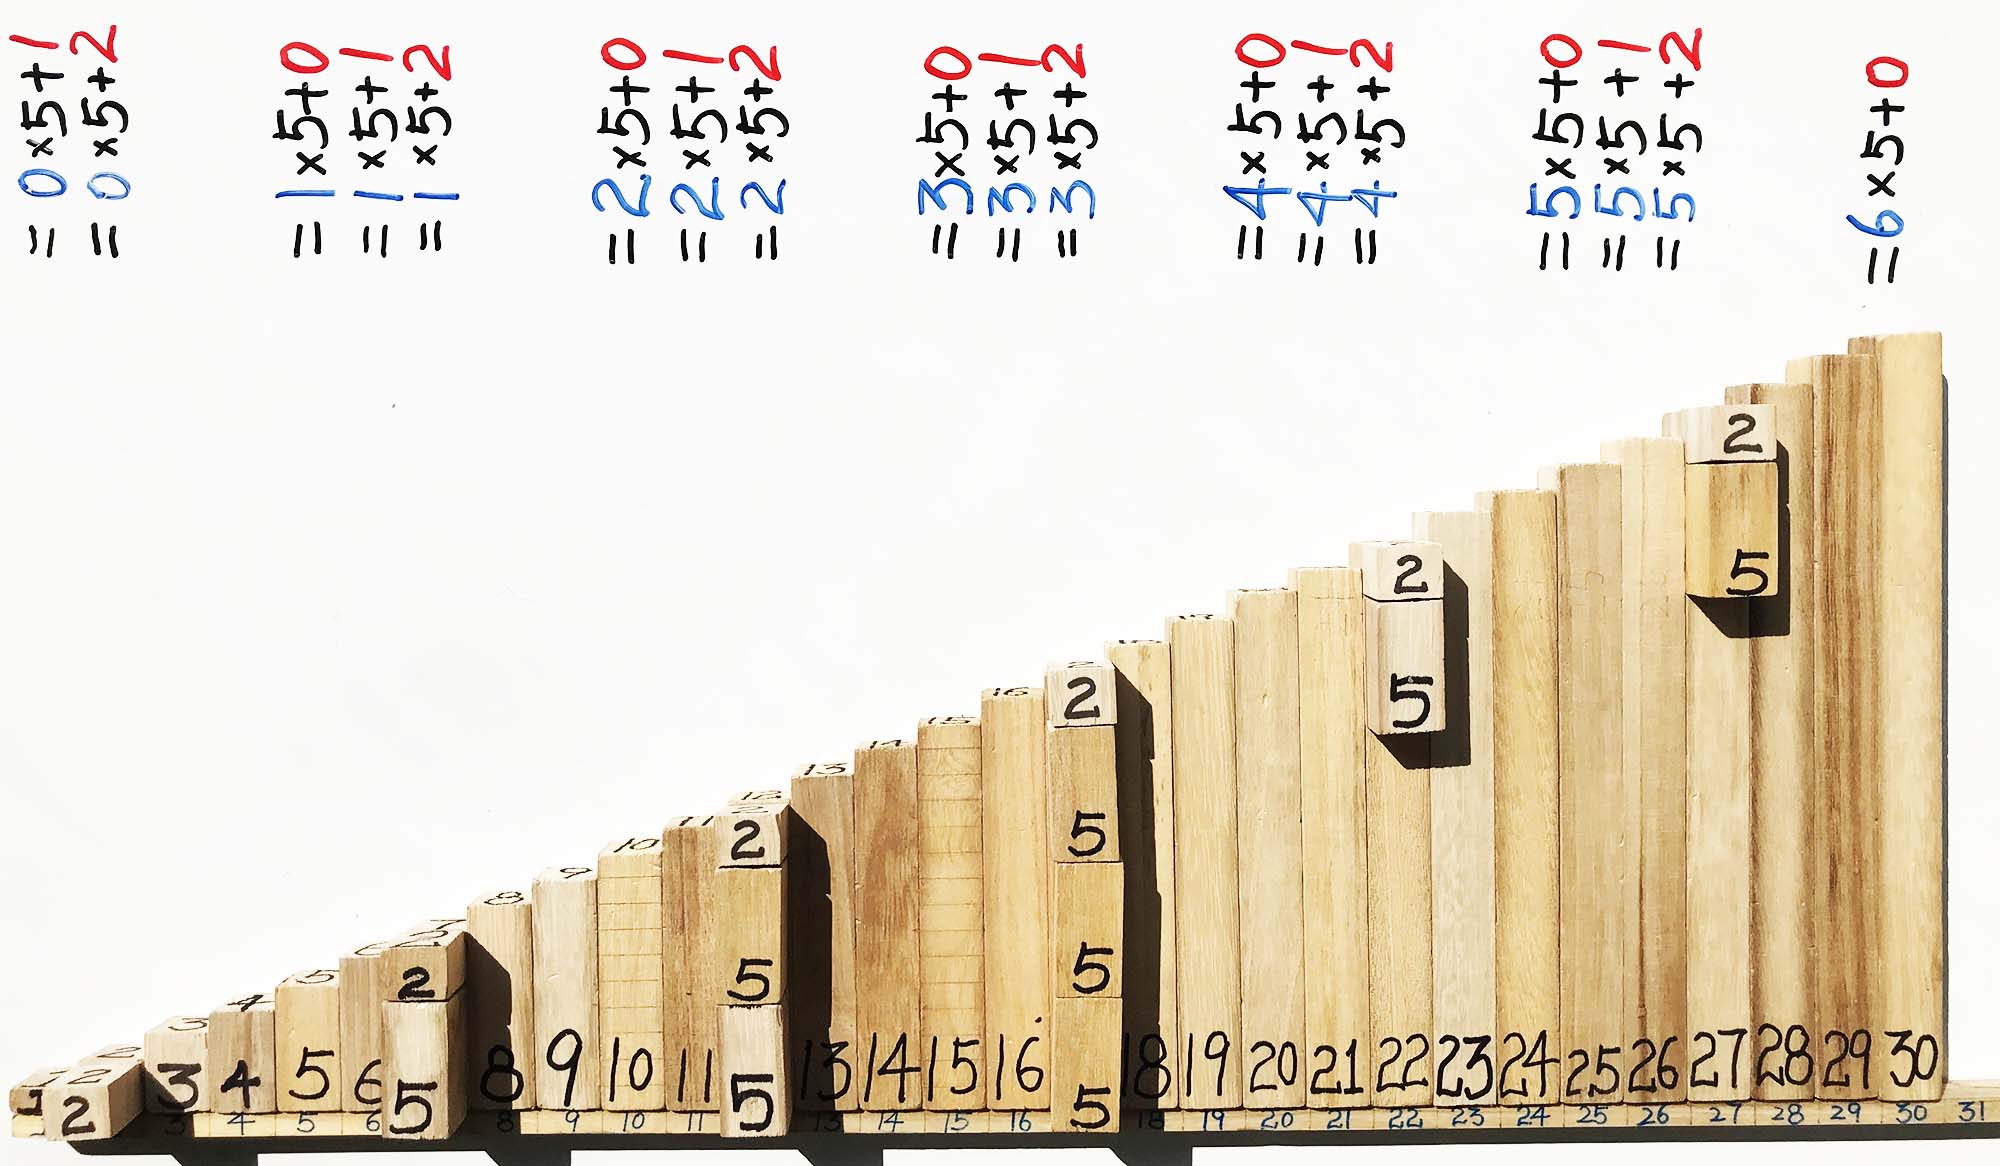 = 0×5+1
= 0×5+2
= 1×5+0
= 1×5+1
= 1×5+2
= 2×5+0
= 2×5+1
= 2×5+2
= 3×5+0
= 3×5+1
= 3×5+2
= 4×5+0
= 4×5+1
= 4×5+2
= 5×5+0
= 5×5+1
= 5×5+2
= 6×5+0
2
5
2
5
2
5
5
5
2
5
5
2
5
2
1 2 2 3 4 5 6 7 2 8 9 10 11 12 2 13 14 15 16 2
3 4 5 6 8 9 10 11 13 14 15 16 18 19 20 21 22 23 24 25 26 27 28 29 30
3 4 5 6 8 9 10 11 13 14 15 16 18 19 20 21 22 23 24 25 26 27 28 29 30 31